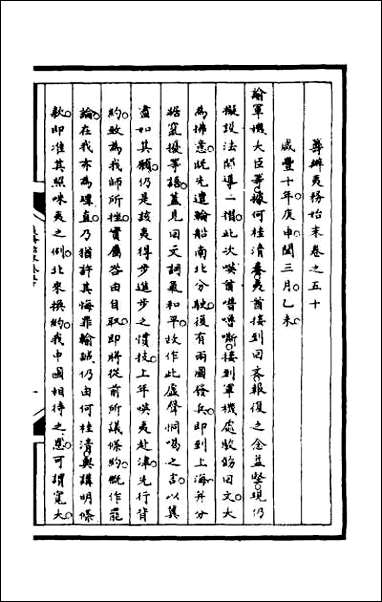 籌辦夷務始末卷之五十
咸豐十年庚申閏三月乙未
諭軍機大臣等據何桂清奏夷酋接到回文報復之念益堅現仍
擬設法開導一摺此次𠸄酋嚕嘶接到軍機處散給回文大
為拂意既先遣輪船南北分駛復有兩國發兵即到上海并分
路竄擾等語蓋見回文詞氣和平故作此虛聲恫喝之言以冀
盡如其願仍是該夷得步進步之慣技上年𠸄夷赴津先行背
約致為我師所挫實屬咎由自取即將從前所議條約概作罷
論在我亦為理直乃猶許其悔罪輸誠仍由何桂清與講明條
款即准其照咪夷之例北來換約我中國相待之恩可謂寬大